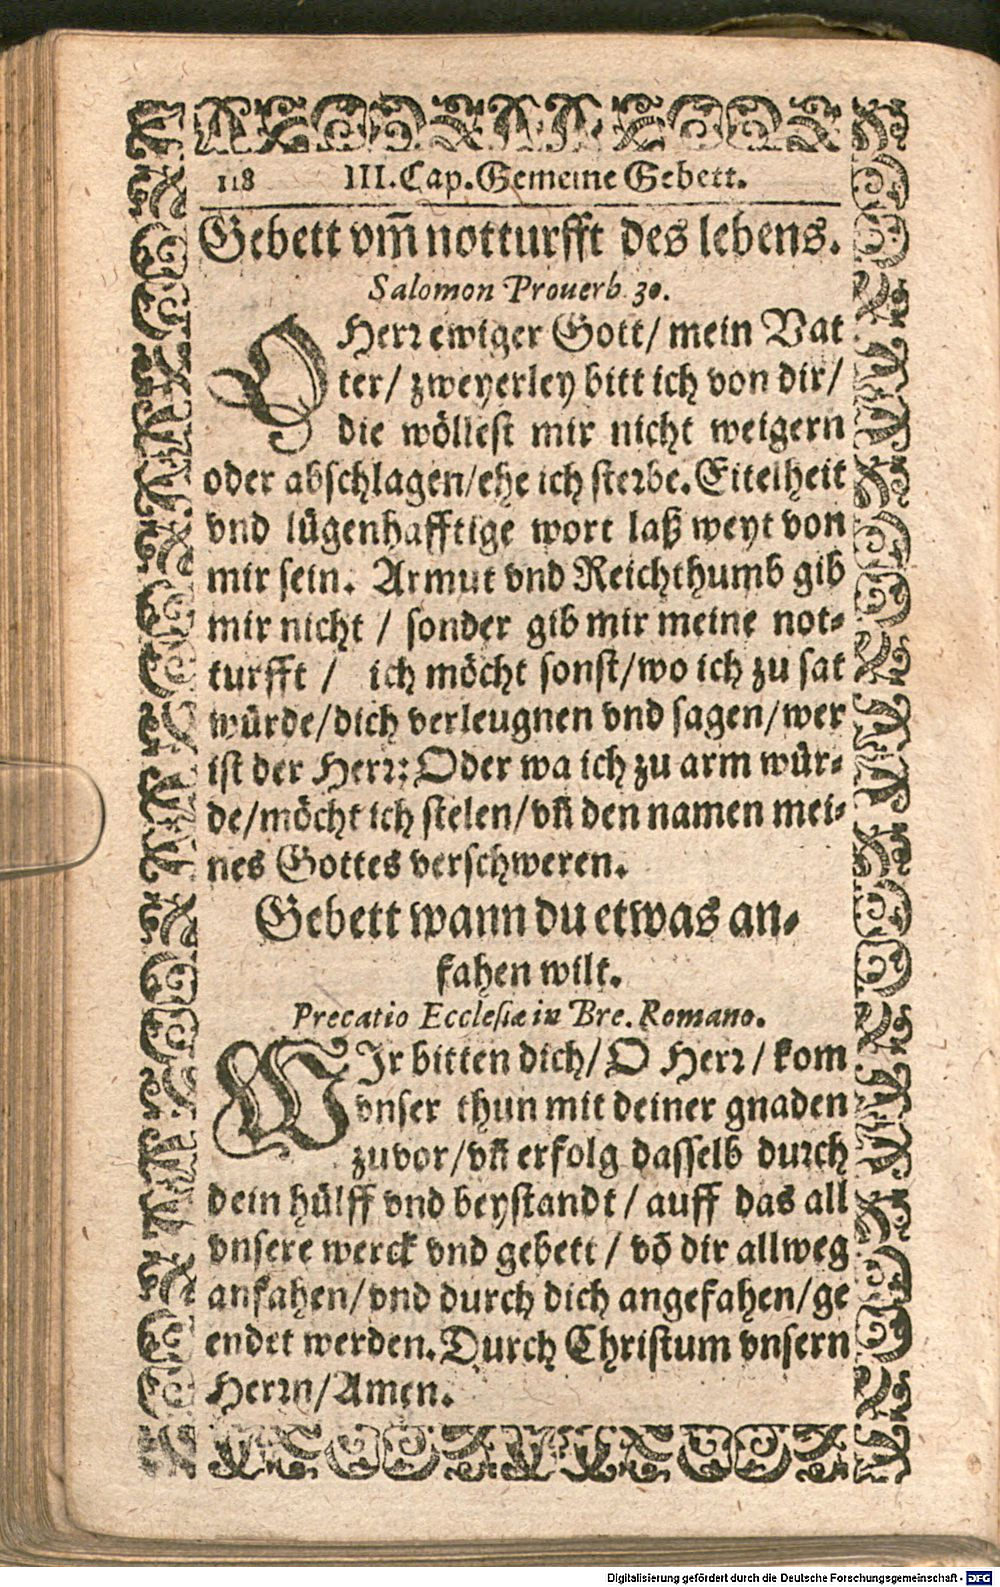 118 III. Cap. Gemeine Gebett.
Gebett vm̃ notturfft des lebens.
Salomon Prouerb. 30.
O Herr ewiger Gott/ mein Vat
ter/ zweyerley bitt ich von dir/
die wöllest mir nicht weigern
oder abschlagen/ehe ich sterbe. Eitelheit
vnd lügenhafftige wort laß weyt von
mir sein. Armut vnd Reichthumb gib
mir nicht / sonder gib mir meine not-
turfft / ich möcht sonst/wo ich zu sat
würde/dich verleugnen vnd sagen/wer
ist der Herr: Oder wa ich zu arm wür-
de/möcht ich stelen/vñ den namen mei-
nes Gottes verschweren.
Gebett wann du etwas an-
fahen wilt.
Precatio Ecclesiæ in Bre. Romano.
WIr bitten dich/ O Herr / kom
vnser thun mit deiner gnaden
zuvor/vñ erfolg dasselb durch
dein hülff vnd beystandt / auff das all
vnsere werck vnd gebett / võ dir allweg
anfahen/vnd durch dich angefahen/ge
endet werden. Durch Christum vnsern
Herrn/Amen.
Digitalisierung gefördert durch die Deutsche Forschungsgemeinschaft - DFG